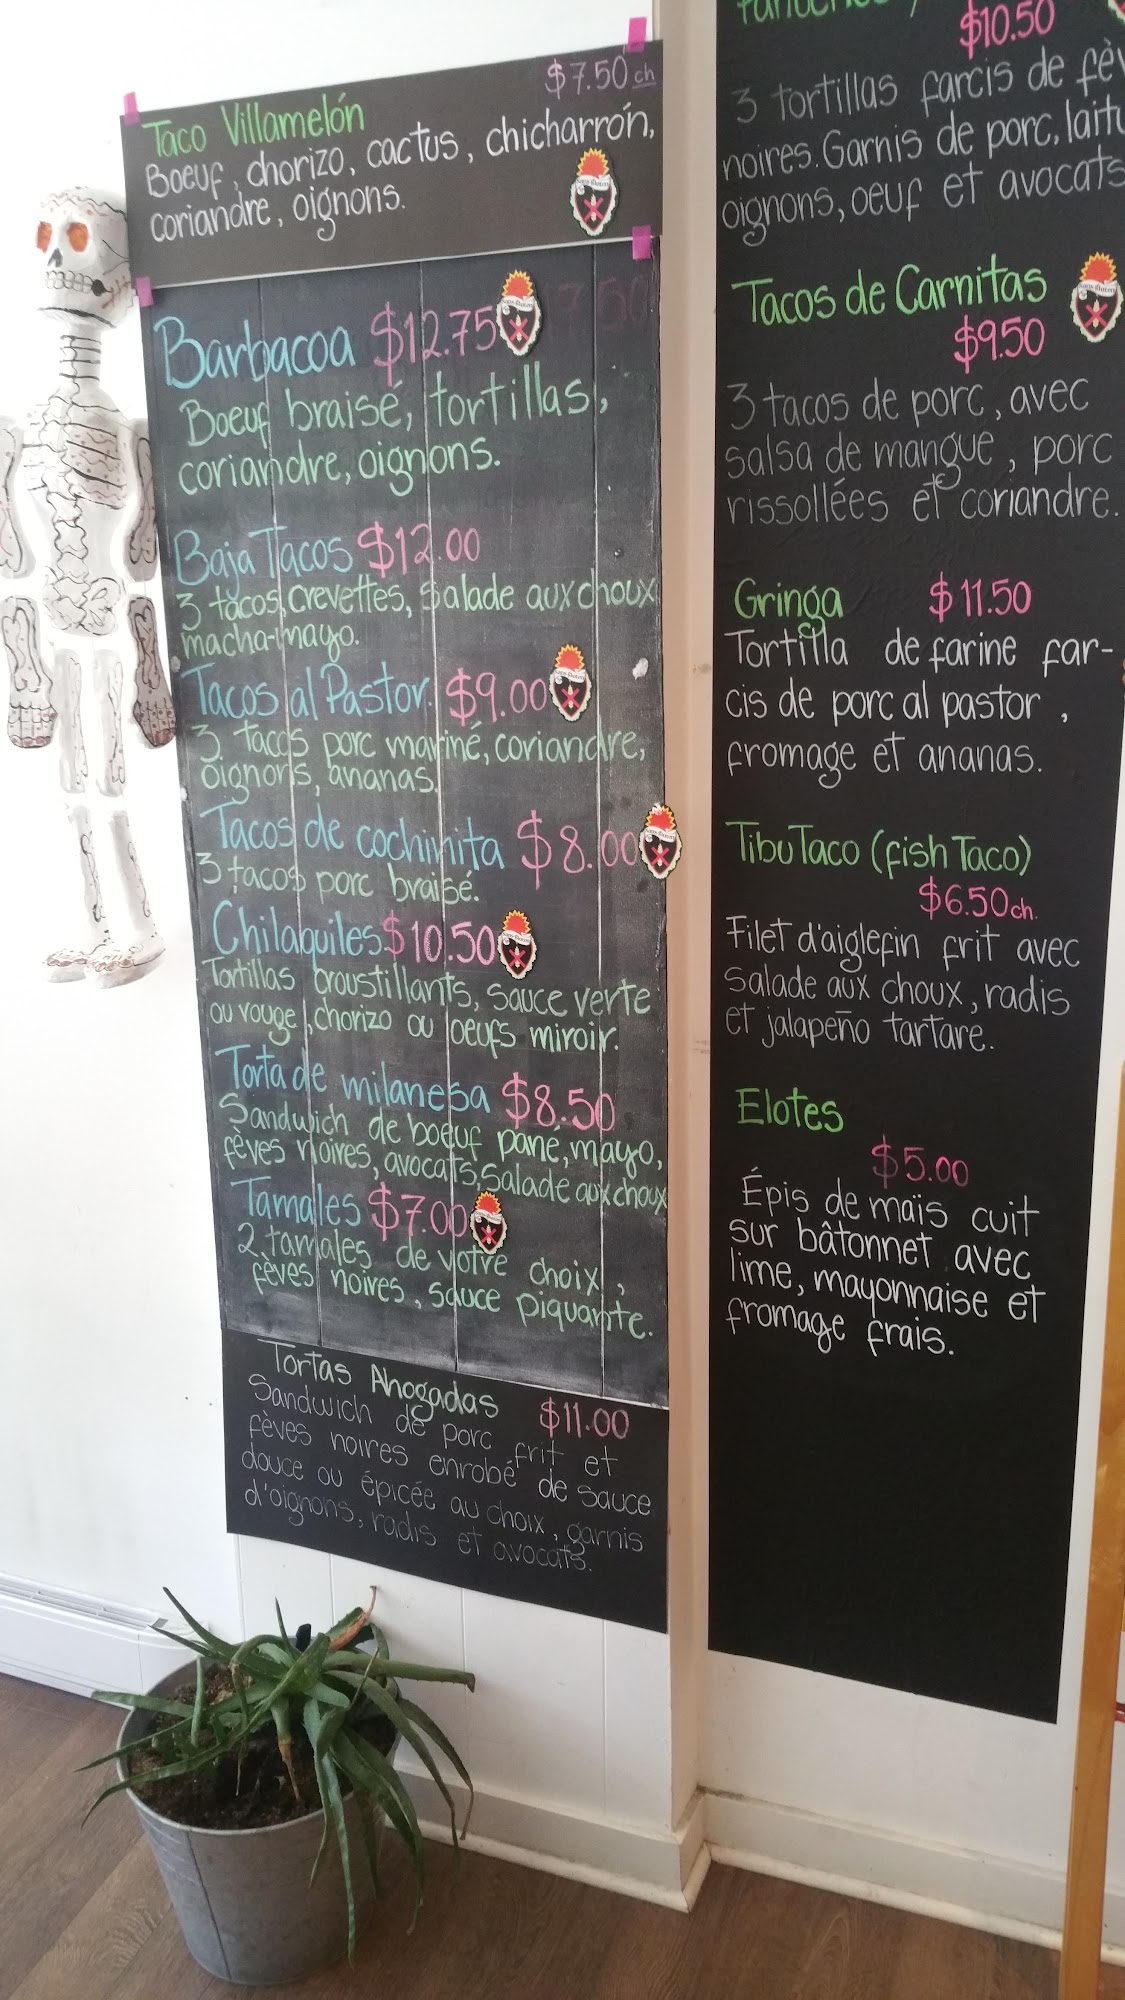 $7.50 ch
Taco Villamelón
Boeuf, chorizo, cactus, chicharrón,
coriandre, oignons.
Barbacoa $12.75
Boeuf braisé, tortillas,
coriandre, oignons.
Baja Tacos $12.00
3 tacos, crevettes, salade aux choux
macha-mayo.
Tacos al Pastor. $9.00
3 tacos porc mariné, coriandre,
oignons, ananas.
Tacos de cochinita $8.00
3 tacos porc braisé.
Chilaquiles $10.50
Tortillas croustillants, sauce verte
ou rouge, chorizo ou oeufs miroir.
Torta de milanesa $8.50
Sandwich de boeuf pané, mayo,
fèves noires, avocats, salade aux choux
Tamales $7.00
2 tamales de votre choix,
fèves noires, sauce piquante.
Tortas Ahogadas $11.00
Sandwich de porc frit et
fèves noires enrobé de sauce
douce ou épicée au choix, garnis
d'oignons, radis et avocats.
$10.50
3 tortillas farcis de
noires. Garnis de porc,
oignons, oeuf et avocats
Tacos de Carnitas
$9.50
3 tacos de porc, avec
salsa de mangue, porc
rissollées et coriandre.
Gringa $11.50
Tortilla de farine far-
cis de porc al pastor,
fromage et ananas.
Tibu Taco (fish Taco)
$6.50 ch.
Filet d'aiglefin frit avec
salade aux choux, radis
et jalapeño tartare.
Elotes
$5.00
Épis de maïs cuit
sur bâtonnet avec
lime, mayonnaise et
fromage frais.